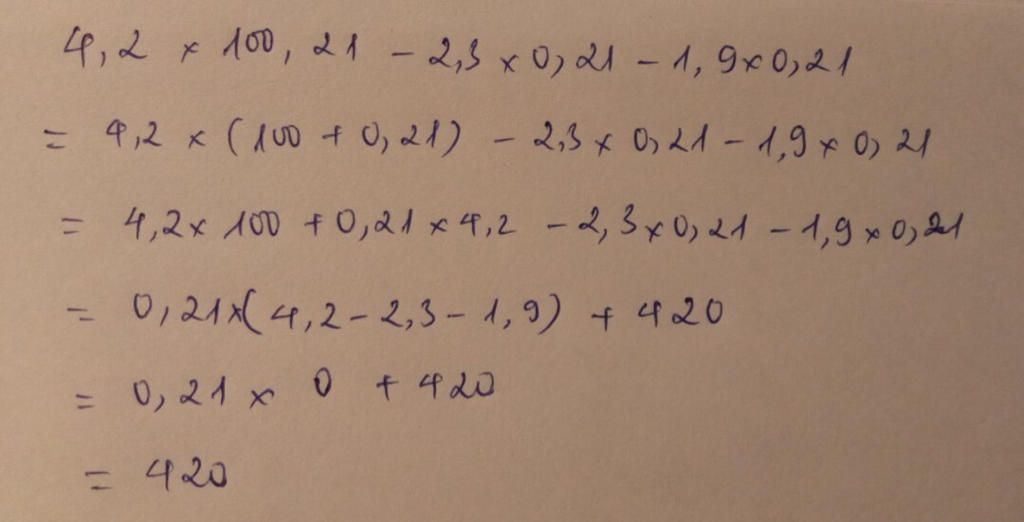 4,2 × 100,21 - 2,3 × 0,21 - 1,9 × 0,21
= 4,2 × (100 + 0,21) - 2,3 × 0,21 - 1,9 × 0,21
= 4,2 × 100 + 0,21 × 4,2 - 2,3 × 0,21 - 1,9 × 0,21
= 0,21 × (4,2 - 2,3 - 1,9) + 420
= 0,21 × 0 + 420
= 420